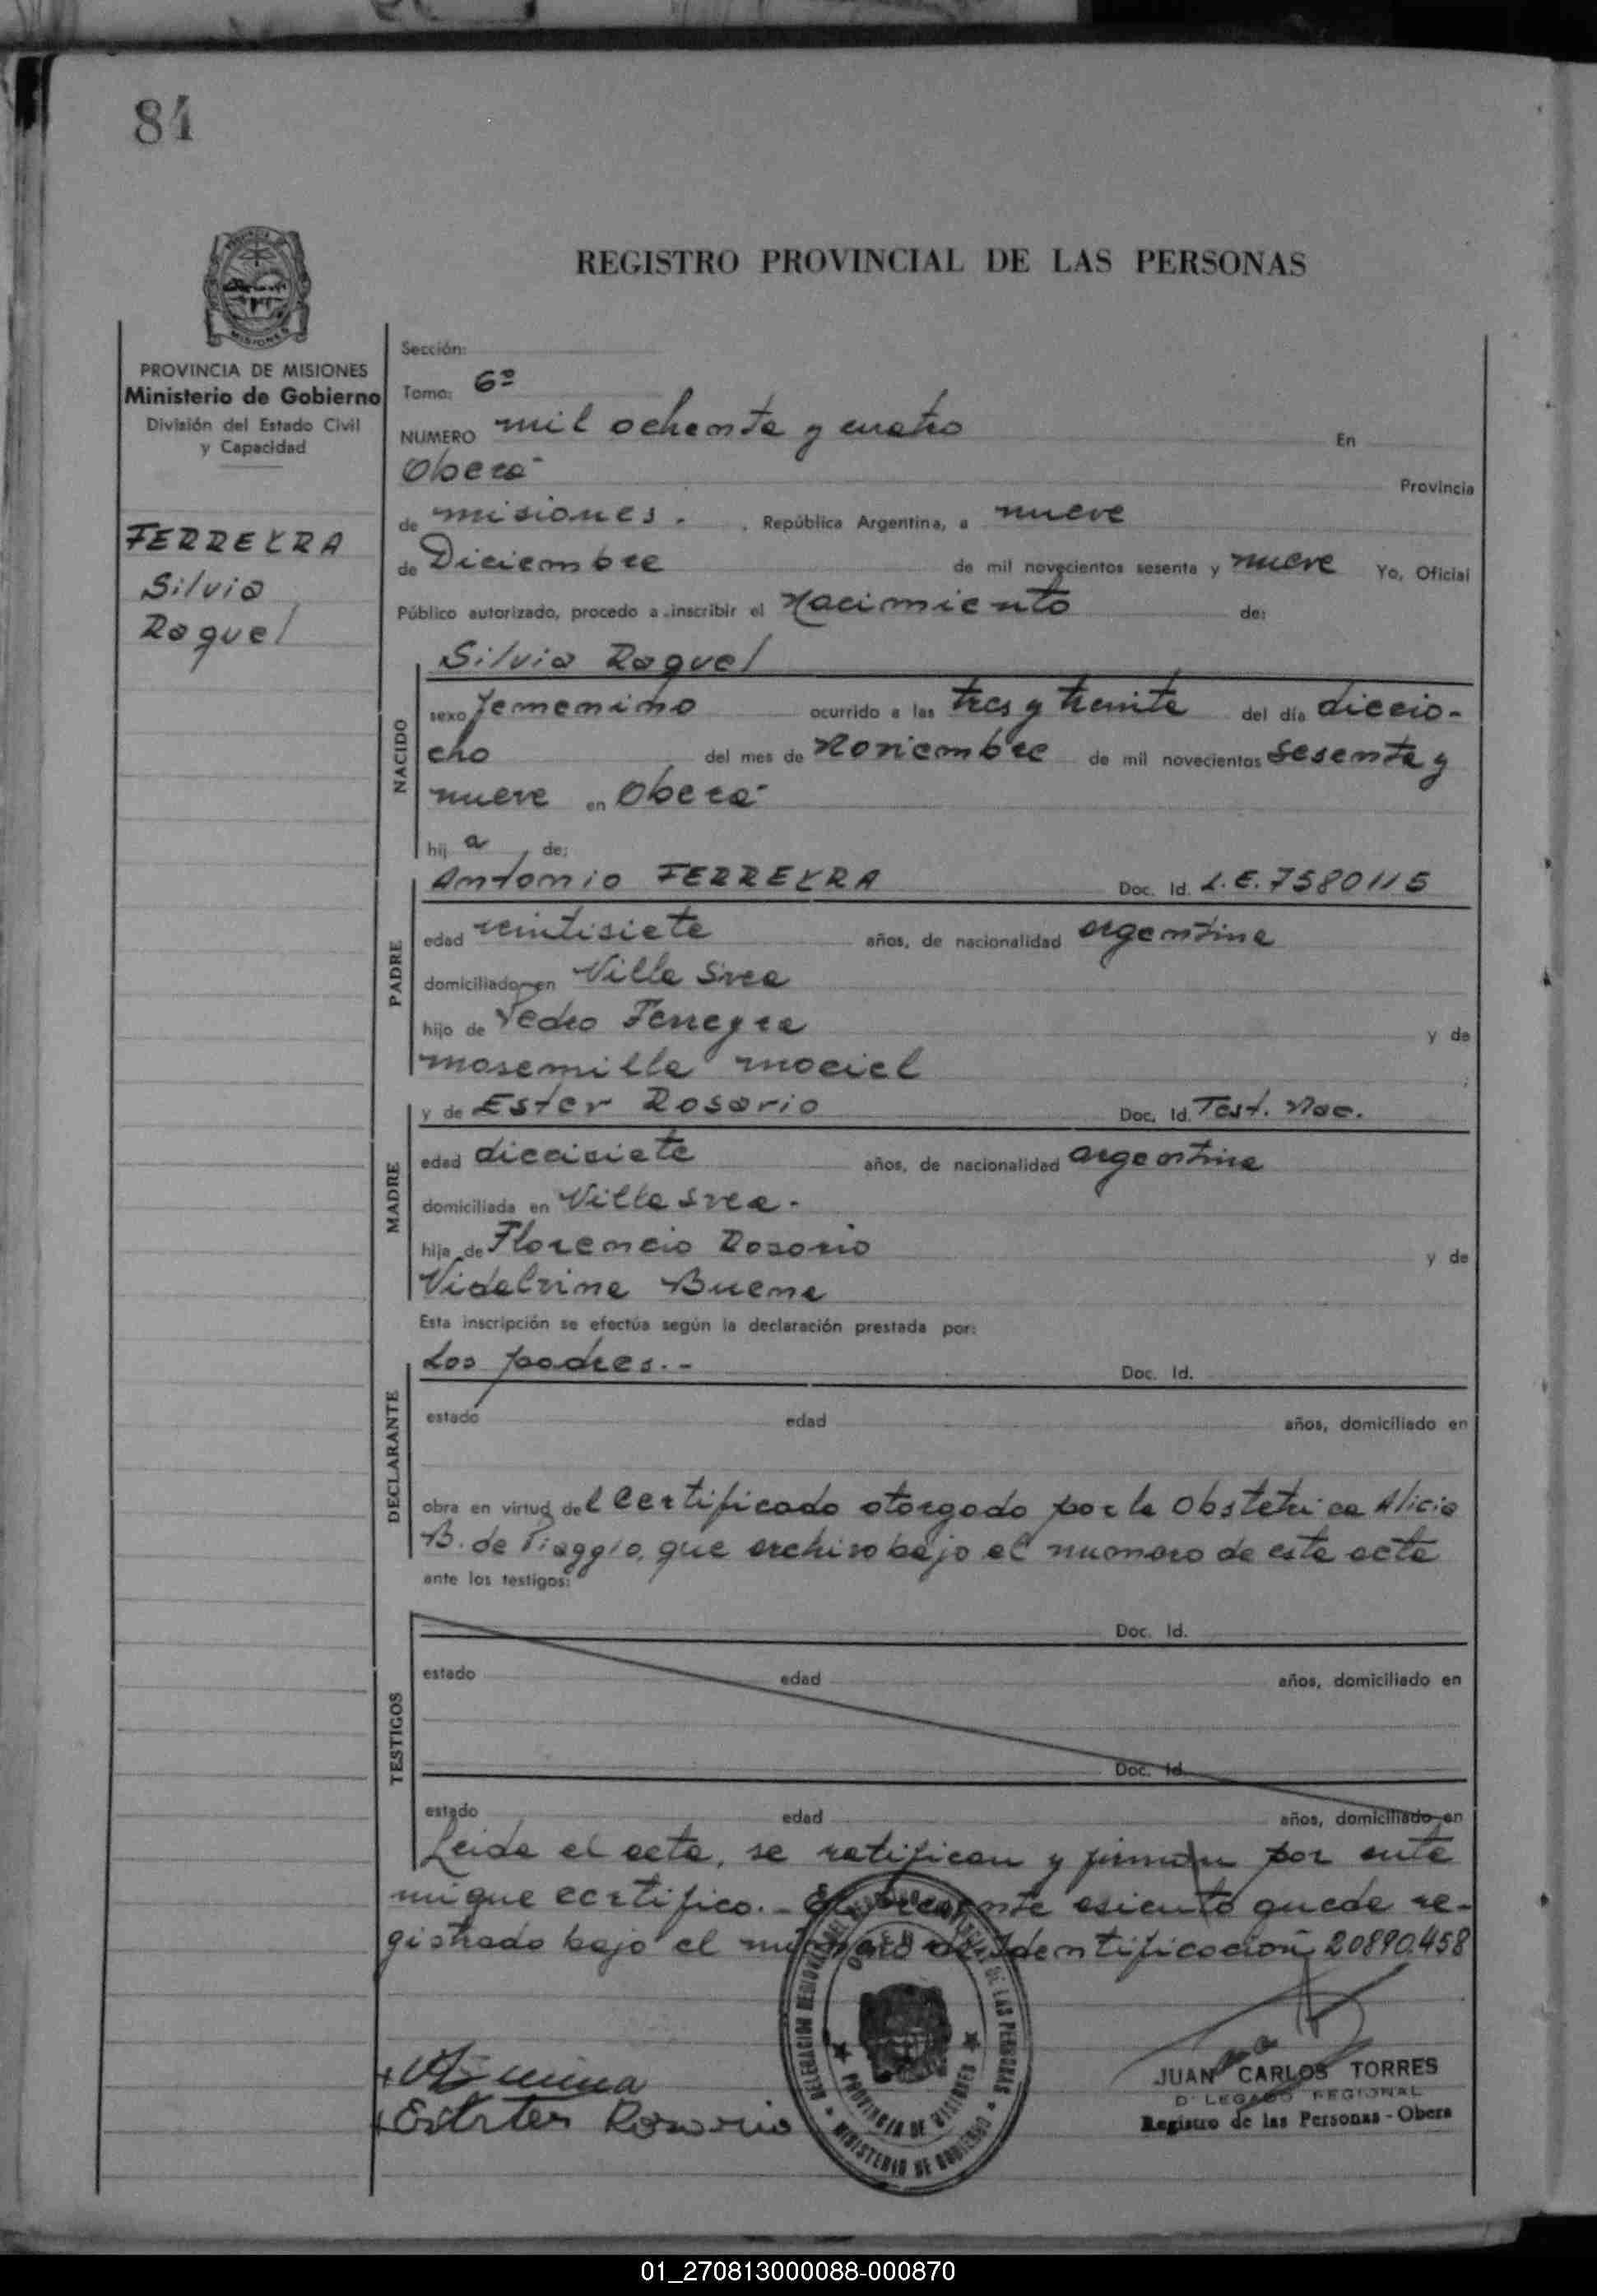 84
REGISTRO PROVINCIAL DE LAS PERSONAS
MISIONES
PROVINCIA DE MISIONES
Ministerio de Gobierno
División del Estado Civil
y Capacidad
FERREYRA
Silvia
Raquel
Sección:
Tomo: 6º
NUMERO mil ochenta y cuatro En
Oberá Provincia
de misiones. , República Argentina, a nueve
de Diciembre de mil novecientos sesenta y nueve Yo, Oficial
Público autorizado, procedo a inscribir el Nacimiento de:
NACIDO
Silvia Raquel
sexo femenino ocurrido a las tres y treinta del día diecio-
cho del mes de Noviembre de mil novecientos sesenta y
nueve en Oberá
hij a de:
PADRE
Antonio FERREYRA Doc. Id. L.E. 7580115
edad veintisiete años, de nacionalidad argentina
domiciliado en Villa Svea
hijo de Pedro Ferreyra y de
mosemilla maciel
MADRE
y de Ester Rosario Doc. Id. Test. Nac.
edad diecisiete años, de nacionalidad argentina
domiciliada en Villa Svea.
hija de Florencio Rosario y de
Vidalvina Buena
Esta inscripción se efectúa según la declaración prestada por:
DECLARANTE
Los padres.- Doc. Id.
estado edad años, domiciliado en
obra en virtud del certificado otorgado por la obstetrica Alicia
B. de Piaggio, que archivo bajo el numero de este acta
ante los testigos:
TESTIGOS
Doc. Id.
estado edad años, domiciliado en
Doc. Id.
estado edad años, domiciliado en
Leida el acta, se ratifican y firman por ante
mi que certifico.- El presente asiento queda re-
gistrado bajo el numero de Identificacion 20890.458
DELEGACION REGIONAL DEL REGISTRO PROVINCIAL DE LAS PERSONAS
OBERA
PROVINCIA DE MISIONES
MINISTERIO DE GOBIERNO
Estster Rosario
JUAN CARLOS TORRES
D LEGADO REGIONAL
Registro de las Personas - Obera
01_270813000088-000870